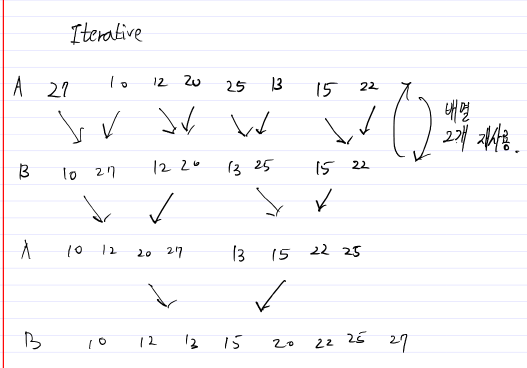 Iterative
A 27 10 12 20 25 13 15 22
배열
2개 재사용.
B 10 27 12 20 13 25 15 22
A 10 12 20 27 13 15 22 25
B 10 12 13 15 20 22 25 27